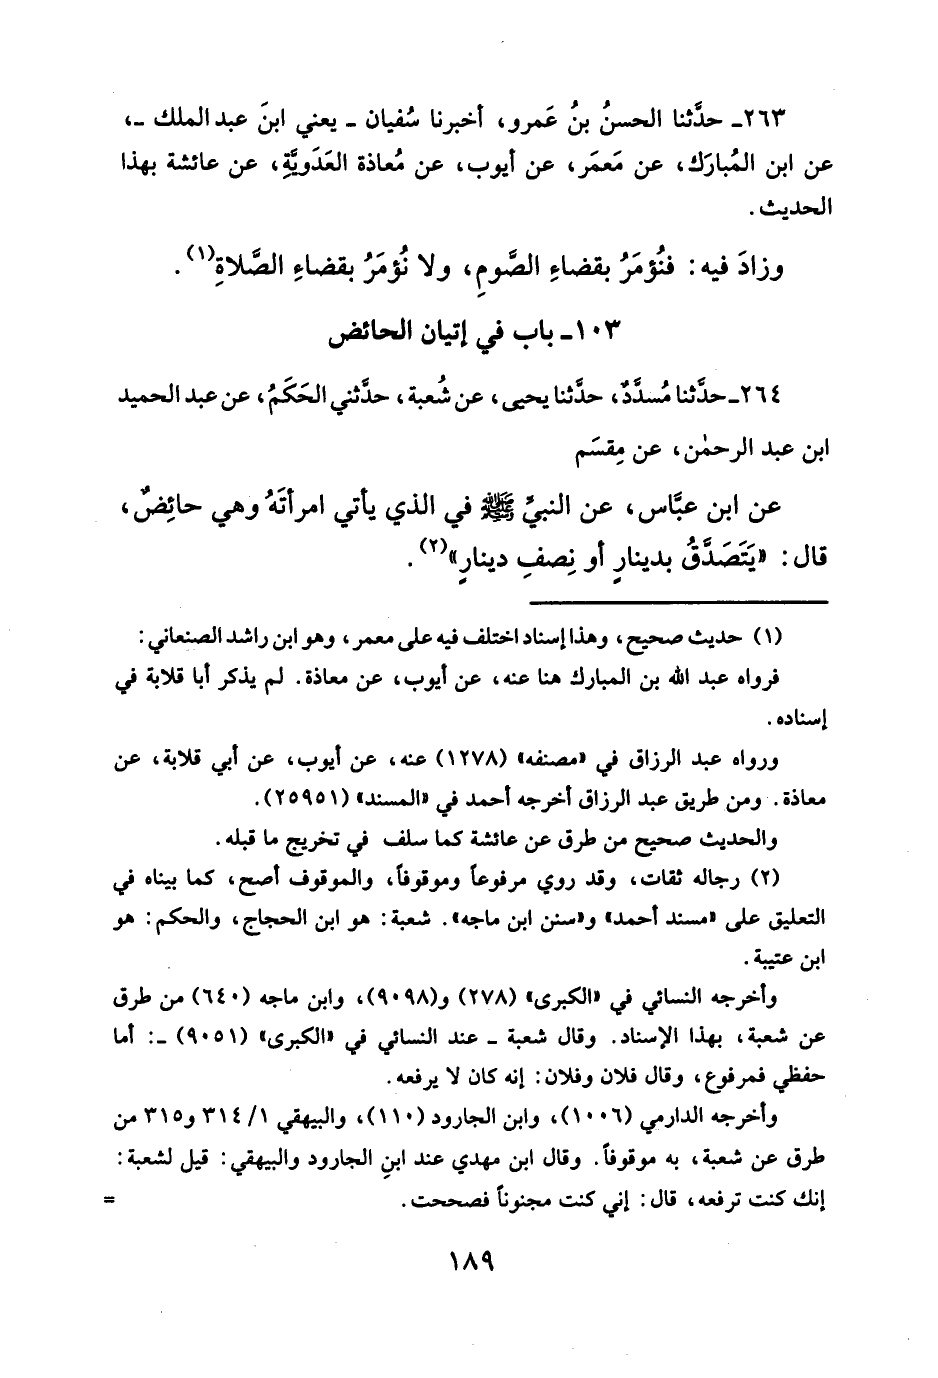 ٢٦٣ـ حدَّثنا الحسنُ بنُ عَمرو، أخبرنا سُفيان ـ يعني ابنَ عبد الملك ـ،
عن ابن المُبارَك، عن مَعمَر، عن أيوب، عن مُعاذة العَدَويَّةِ، عن عائشة بهذا
الحديث.
وزادَ فيه: فنُؤمَرُ بقضاءِ الصَّومِ، ولا نُؤمَرُ بقضاءِ الصَّلاةِ(١).
١٠٣ـ باب في إتيان الحائض
٢٦٤ـ حدَّثنا مُسدَّدٌ، حدَّثنا يحيى، عن شُعبة، حدَّثني الحَكَمُ، عن عبد الحميد
ابن عبد الرحمٰن، عن مِقسَم
عن ابن عبَّاس، عن النبيِّ ﷺ في الذي يأتي امرأتَهُ وهي حائِضٌ،
قال: «يَتَصَدَّقُ بدينارٍ أو نِصفِ دينارٍ»(٢).
(١) حديث صحيح، وهذا إسناد اختلف فيه على معمر، وهو ابن راشد الصنعاني:
فرواه عبد الله بن المبارك هنا عنه، عن أيوب، عن معاذة. لم يذكر أبا قلابة في
إسناده.
ورواه عبد الرزاق في «مصنفه» (١٢٧٨) عنه، عن أيوب، عن أبي قلابة، عن
معاذة. ومن طريق عبد الرزاق أخرجه أحمد في «المسند» (٢٥٩٥١).
والحديث صحيح من طرق عن عائشة كما سلف في تخريج ما قبله.
(٢) رجاله ثقات، وقد روي مرفوعاً وموقوفاً، والموقوف أصح، كما بيناه في
التعليق على «مسند أحمد» و«سنن ابن ماجه». شعبة: هو ابن الحجاج، والحكم: هو
ابن عتيبة.
وأخرجه النسائي في «الكبرى» (٢٧٨) و(٩٠٩٨)، وابن ماجه (٦٤٠) من طرق
عن شعبة، بهذا الإسناد. وقال شعبة ـ عند النسائي في «الكبرى» (٩٠٥١) ـ: أما
حفظي فمرفوع، وقال فلان وفلان: إنه كان لا يرفعه.
وأخرجه الدارمي (١٠٠٦)، وابن الجارود (١١٠)، والبيهقي ١/ ٣١٤ و٣١٥ من
طرق عن شعبة، به موقوفاً. وقال ابن مهدي عند ابنِ الجارود والبيهقي: قيل لشعبة:
إنك كنت ترفعه، قال: إني كنت مجنوناً فصححت. =
١٨٩